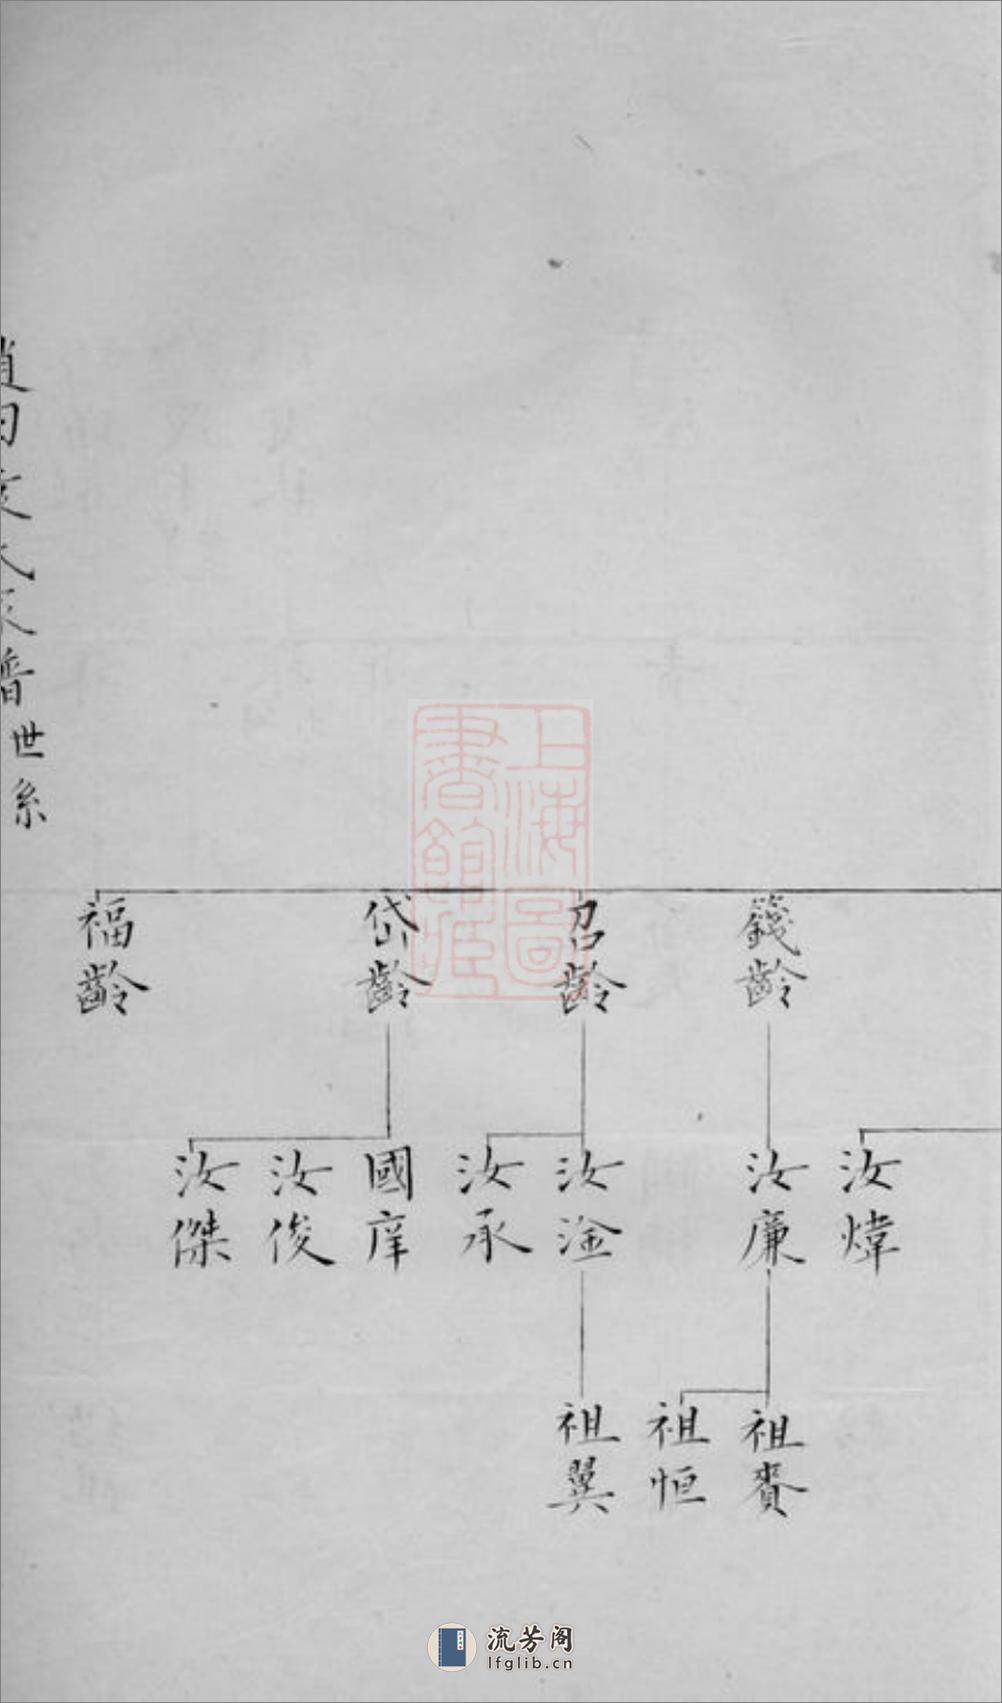 籛齡
召齡
岱齡
福齡
汝煒
汝廉
汝淦
汝承
國庠
汝俊
汝傑
祖賚
祖恒
祖翼
譜世系
上海圖書館藏
流芳阁
lfglib.cn